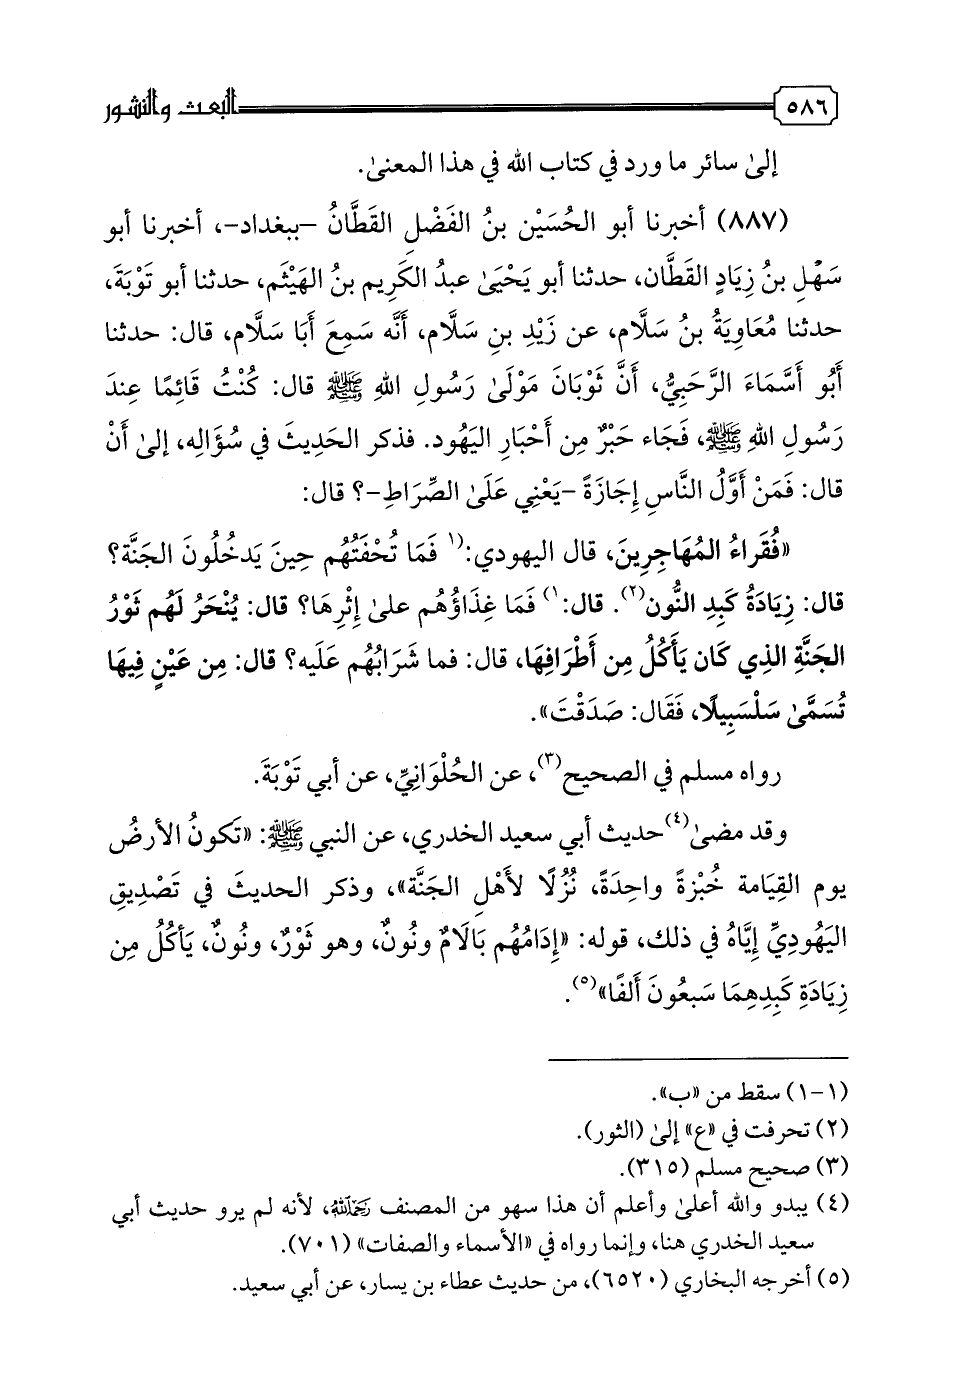 ٥٨٦ البعث والنشور
إلىٰ سائر ما ورد في كتاب الله في هذا المعنىٰ.
(٨٨٧) أخبرنا أبو الحُسَيْن بنُ الفَضْلِ القَطَّانُ -ببغداد-، أخبرنا أبو
سَهْلِ بنُ زِيَادٍ القَطَّان، حدثنا أبو يَحْيَىٰ عبدُ الكَرِيم بنُ الهَيْثَم، حدثنا أبو تَوْبَةَ،
حدثنا مُعَاوِيَةُ بنُ سَلَّام، عن زَيْدِ بنِ سَلَّام، أنَّه سَمِعَ أبَا سَلَّام، قال: حدثنا
أَبُو أَسَّمَاءَ الرَّحَبِيُّ، أَنَّ ثَوْبَانَ مَوْلَىٰ رَسُولِ اللهِ ﷺ قال: كُنْتُ قَائِمًا عِندَ
رَسُولِ اللهِ ﷺ، فَجَاء حَبْرٌ مِن أَحْبَارِ اليَهُود. فذكر الحَدِيثَ في سُؤَالِه، إلىٰ أَنْ
قال: فَمَنْ أَوَّلُ النَّاسِ إِجَازَةً -يَعْنِي عَلَىٰ الصِّرَاطِ-؟ قال:
«فُقَراءُ المُهَاجِرِينَ، قال اليهودي: (١ فَمَا تُحْفَتُهُم حِينَ يَدخُلُونَ الجَنَّة؟
قال: زِيَادَةُ كَبِدِ النُّون(٢). قال: ١) فَمَا غِذَاؤُهُم علىٰ إِثْرِهَا؟ قال: يُنْحَرُ لَهُم ثَوْرُ
الجَنَّةِ الذِي كَان يَأْكُلُ مِن أَطْرَافِهَا، قال: فما شَرَابُهُم عَلَيه؟ قال: مِن عَيْنٍ فِيهَا
تُسَمَّىٰ سَلْسَبِيلًا، فَقَال: صَدَقْتَ».
رواه مسلم في الصحيح(٣)، عن الحُلْوَانِيِّ، عن أبي تَوْبَةَ.
وقد مضىٰ(٤) حديث أبي سعيد الخدري، عن النبي ﷺ: «تَكونُ الأرضُ
يوم القِيَامة خُبْزةً واحِدَةً، نُزُلًا لأَهْلِ الجَنَّة»، وذكر الحديثَ في تَصْدِيقِ
اليَهُودِيِّ إيَّاهُ في ذلك، قوله: «إِدَامُهُم بَالَامٌ ونُونٌ، وهو ثَوْرٌ، ونُونٌ، يَأكُلُ مِن
زِيَادَةِ كَبِدِهِمَا سَبعُونَ أَلفًا»(٥).
(١-١) سقط من «ب».
(٢) تحرفت في «ع» إلىٰ (الثور).
(٣) صحيح مسلم (٣١٥).
(٤) يبدو والله أعلىٰ وأعلم أن هذا سهو من المصنف رحمه الله، لأنه لم يرو حديث أبي
سعيد الخدري هنا، وإنما رواه في «الأسماء والصفات» (٧٠١).
(٥) أخرجه البخاري (٦٥٢٠)، من حديث عطاء بن يسار، عن أبي سعيد.